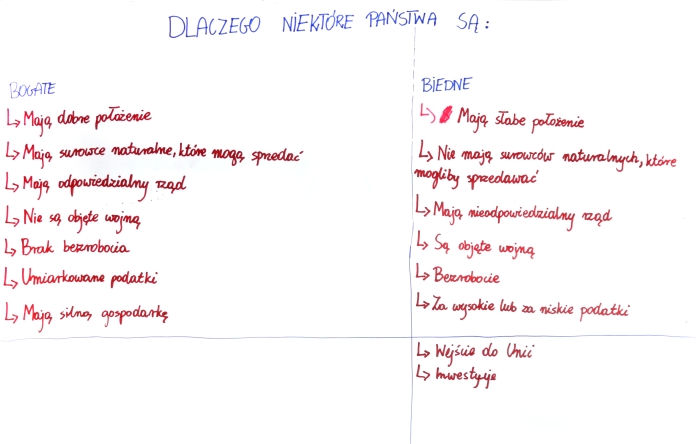 DLACZEGO NIEKTÓRE PAŃSTWA SĄ:
BOGATE
↳ Mają dobre położenie
↳ Mają surowce naturalne, które mogą sprzedać
↳ Mają odpowiedzialny rząd
↳ Nie są objęte wojną
↳ Brak bezrobocia
↳ Umiarkowane podatki
↳ Mają silną gospodarkę
BIEDNE
↳ Mają słabe położenie
↳ Nie mają surowców naturalnych, które
mogliby sprzedawać
↳ Mają nieodpowiedzialny rząd
↳ Są objęte wojną
↳ Bezrobocie
↳ Za wysokie lub za niskie podatki
↳ Wejście do Unii
↳ Inwestycje